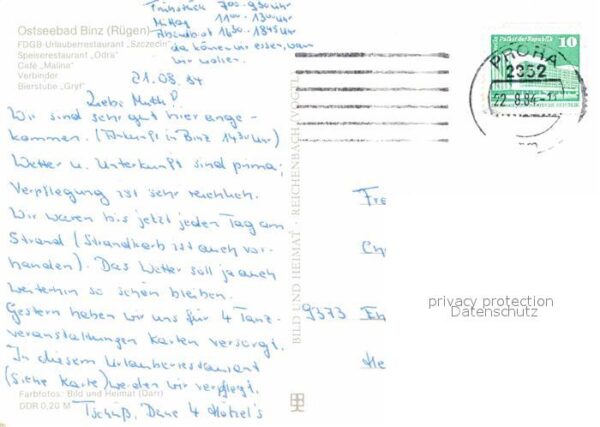 Frühstück 7⁰⁰-9³⁰ Uhr
Mittag 11⁰⁰-13⁰⁰ Uhr
Abendbrot 16³⁰-18⁴⁵ Uhr
da können wir essen, wann
wir wollen.
Ostseebad Binz (Rügen)
FDGB-Urlauberrestaurant „Szczecin"
Speiserestaurant „Odra"
Café „Malina"
Verbinder
Bierstube „Gryf"
21.08.84
Liebe Mutti!
Wir sind sehr gut hier ange-
kommen. (Ankunft in Binz 14³⁰ Uhr)
Wetter u. Unterkunft sind prima;
Verpflegung ist sehr reichlich.
Wir waren bis jetzt jeden Tag am
Strand (Strandkorb ist auch vor-
handen). Das Wetter soll ja auch
weiterhin so schön bleiben.
Gestern haben wir uns für 4 Tanz-
veranstaltungen Karten versorgt.
In diesem Urlauberrestaurant
(siehe Karte) werden wir verpflegt.
Tschüß, Deine 4
Farbfotos: Bild und Heimat (Darr)
DDR 0,20 M
BILD UND HEIMAT · REICHENBACH (VOGTL)
Palast der Republik 10
PRORA
2352
22.8.84
Fre
Ch
9373 Eh
He
privacy protection
Datenschutz